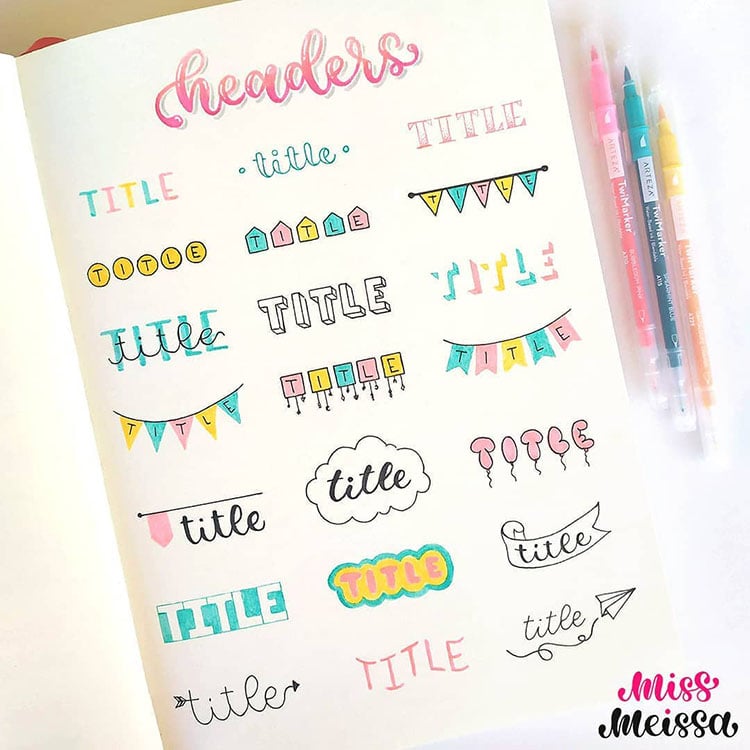 headers
TITLE
title
TITLE
TITLE
TITLE
TITLE
TITLE
title
TITLE
TITLE
TITLE
TITLE
TITLE
title
title
TITLE
TITLE
TITLE
title
title
TITLE
title
ARTEZA
TwiMarker
ARTEZA
TwiMarker
ARTEZA
TwiMarker
Miss
Meissa